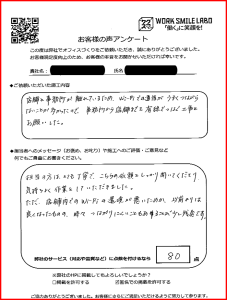 WORK SMILE LABO
「働く」に笑顔を!
お客様の声アンケート
この度は弊社でオフィスづくりをご依頼いただき、誠にありがとうございました。
お客様満足度向上のため、お客様の率直な声をお聞かせいただければ幸いです。
貴社名:
氏名:
●ご依頼いただいた施工内容
店舗と事務所が離れているため、Wi-Fiでの通信がうまくつながら
ないことが多かったので、事務所から店舗までを有線でつなぐ工事を
お願いした。
●担当者へのメッセージ(お褒め、お叱り)や施工へのご評価・ご意見など
何でもご自由にお書きください。
担当の方はとても丁寧で、こちらの依頼をしっかり聞いてくださり
気持ちよく作業をしていただきました。
ただ、店舗内でのWi-Fiの環境が悪いためか、以前よりは
良くなったものの、時々つながりにくいこともあることが少し残念です。
弊社のサービス(対応や品質など)に点数を付けるなら
80 点
※弊社のHPに掲載してもよろしいでしょうか?
□掲載を許可する
ご協力ありがとうございました。お客様にさらにご満足いただけるよう努力して参ります。